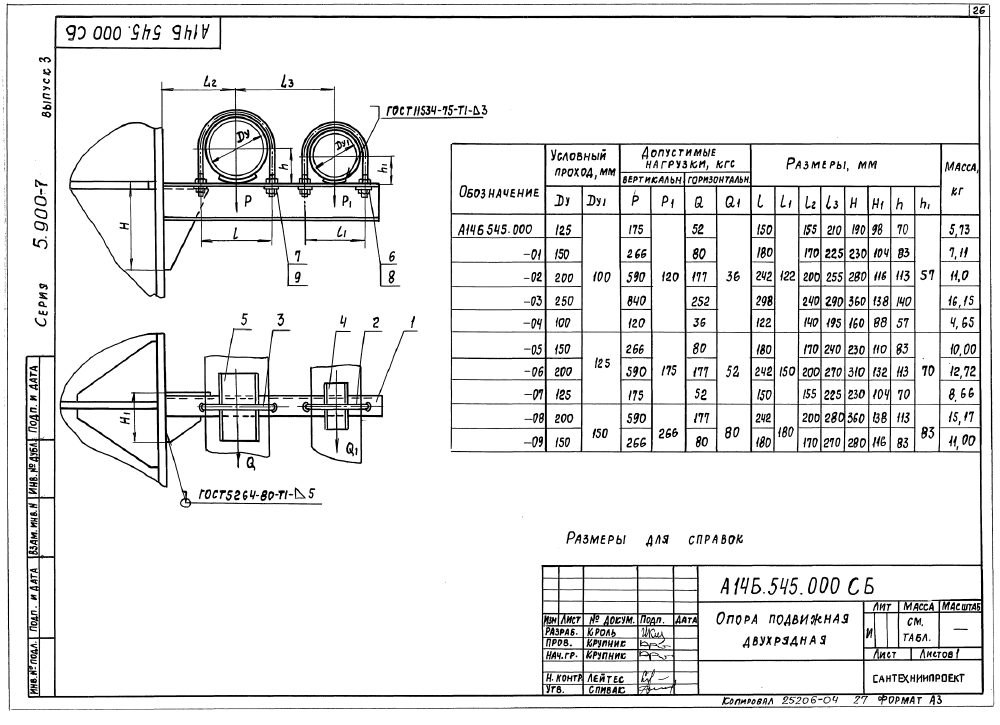 26
А14Б 545. 000 СБ
Серия 5.900-7 выпуск 3
L2 L3
ГОСТ 11534-75-Т1-△3
Ду Ду1
h h1
P P1
H
l l1
7 6
9 8
5 3 4 2 1
H1
Q Q1
ГОСТ 5264-80-Т1-△5
Обозначение | Условный проход, мм | Допустимые нагрузки, кгс | Размеры, мм | Масса, кг
вертикальн. | горизонтальн.
Ду Ду1 P P1 Q Q1 l l1 L2 L3 H H1 h h1
А14Б 545.000 125 175 52 150 155 210 190 98 70 5,73
-01 150 266 80 180 170 225 230 104 83 7,11
-02 200 100 590 120 177 36 242 122 200 255 280 116 113 57 11,0
-03 250 840 252 298 240 290 360 138 140 16,15
-04 100 120 36 122 140 195 160 88 57 4,65
-05 150 266 80 180 170 240 230 110 83 10,00
-06 200 125 590 175 177 52 242 150 200 270 310 132 113 70 12,72
-07 125 175 52 150 155 225 230 104 70 8,66
-08 200 590 177 242 200 280 360 138 113 15,17
-09 150 150 266 266 80 80 180 180 170 270 280 116 83 83 11,00
Размеры для справок
Инв. № подл. Подп. и дата Взам. инв. № Инв. № дубл. Подп. и дата
А14Б.545.000 СБ
Изм Лист № докум. Подп. Дата
Разраб. Кроль
Пров. Крупник
Нач. гр. Крупник
Н. контр Лейтес
Утв. Спивак
Опора подвижная
двухрядная
Лит Масса Масштаб
И см. табл. —
Лист Листов 1
Сантехниипроект
Копировал 25206-04 27 Формат А3